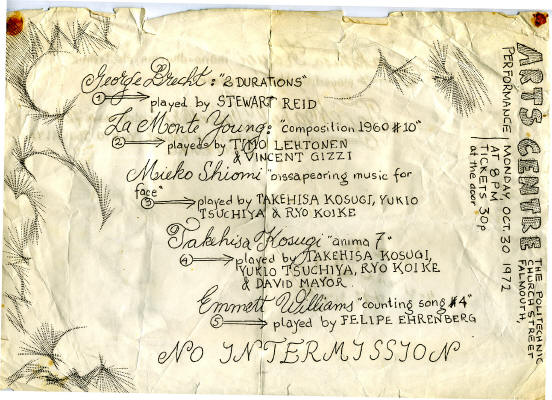 George Brecht: "2 DURATIONS"
1 played by STEWART REID
La Monte Young: "composition 1960 #10"
2 played by TIMO LEHTONEN
& VINCENT GIZZI
Mieko Shiomi "DISSAPEARING music for
face"
3 played by TAKEHISA KOSUGI, YUKIO
TSUCHIYA & RYO KOIKE
Takehisa Kosugi "anima 7"
4 played by TAKEHISA KOSUGI,
YUKIO TSUCHIYA, RYO KOIKE
& DAVID MAYOR
Emmett Williams "counting song #4"
5 played by FELIPE EHRENBERG
NO INTERMISSION
ARTS CENTRE THE POLITECHNIC
CHURCH STREET
FALMOUTH
PERFORMANCE MONDAY OCT. 30 1972
AT 8 PM
TICKETS 30p
at the door